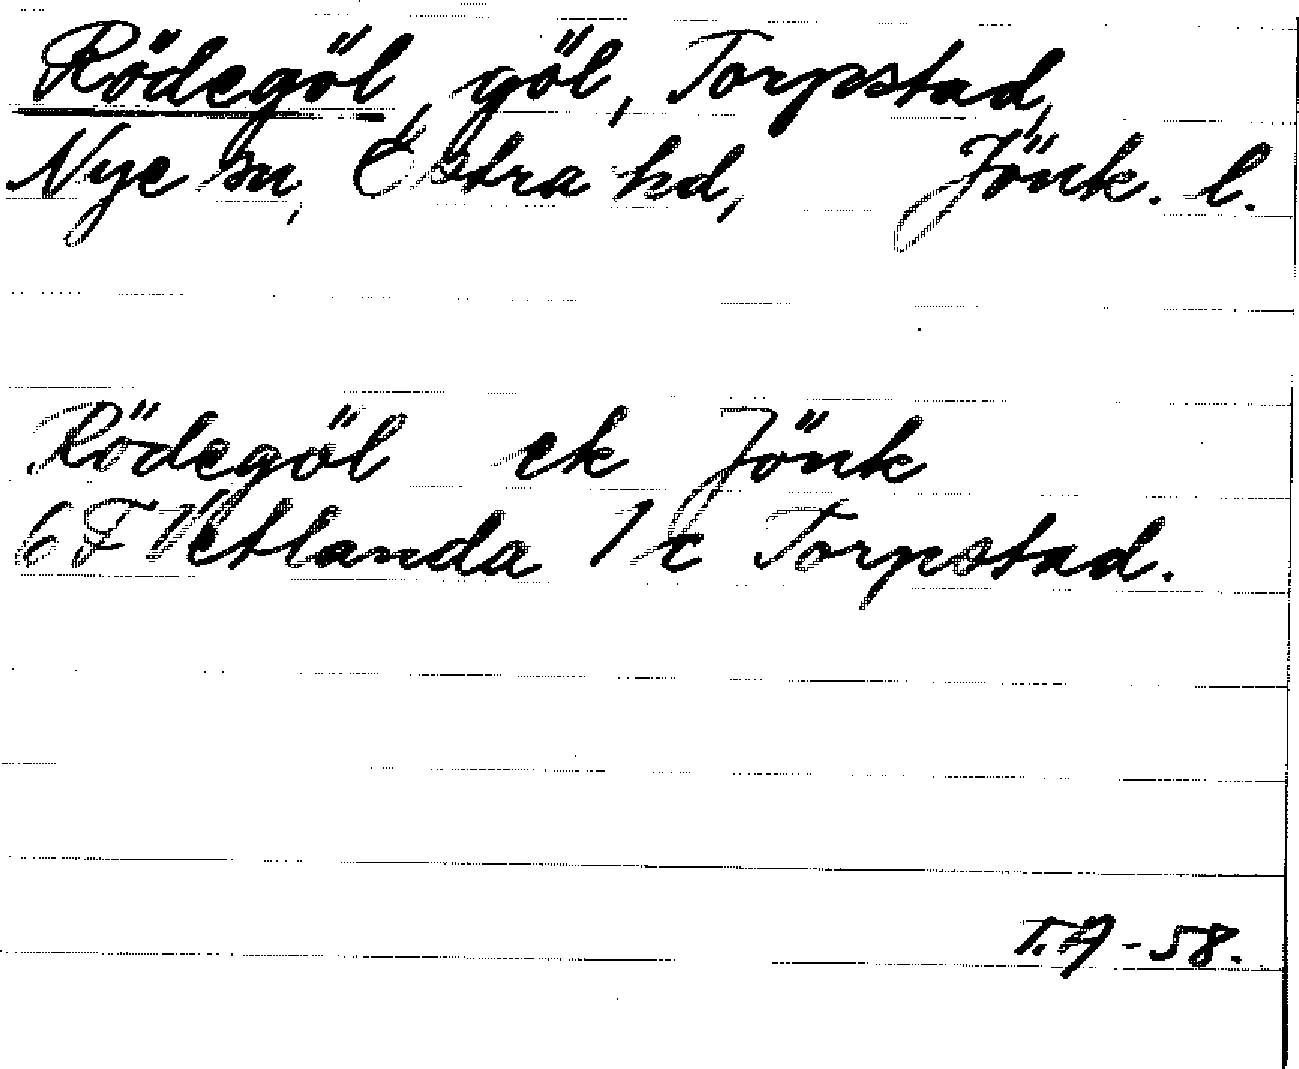 Rödegöl, göl, Torpstad,
Nye sn, Östra hd, Jönk. l.
Rödegöl ek Jönk
6F Vetlanda 1 c Torpstad.
T.A - 58.